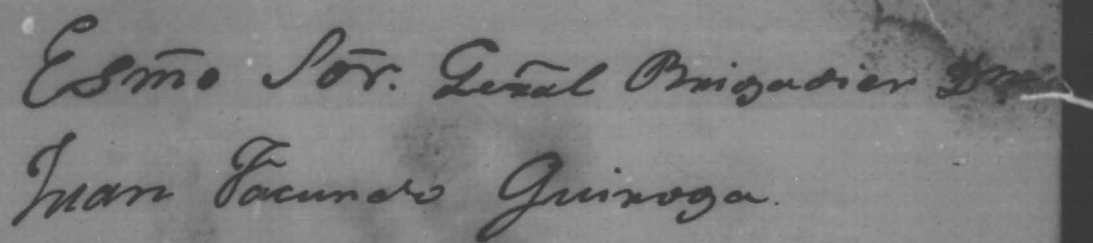 Esmo Sor. Genal Brigadier Dn
Juan Facundo Quiroga.